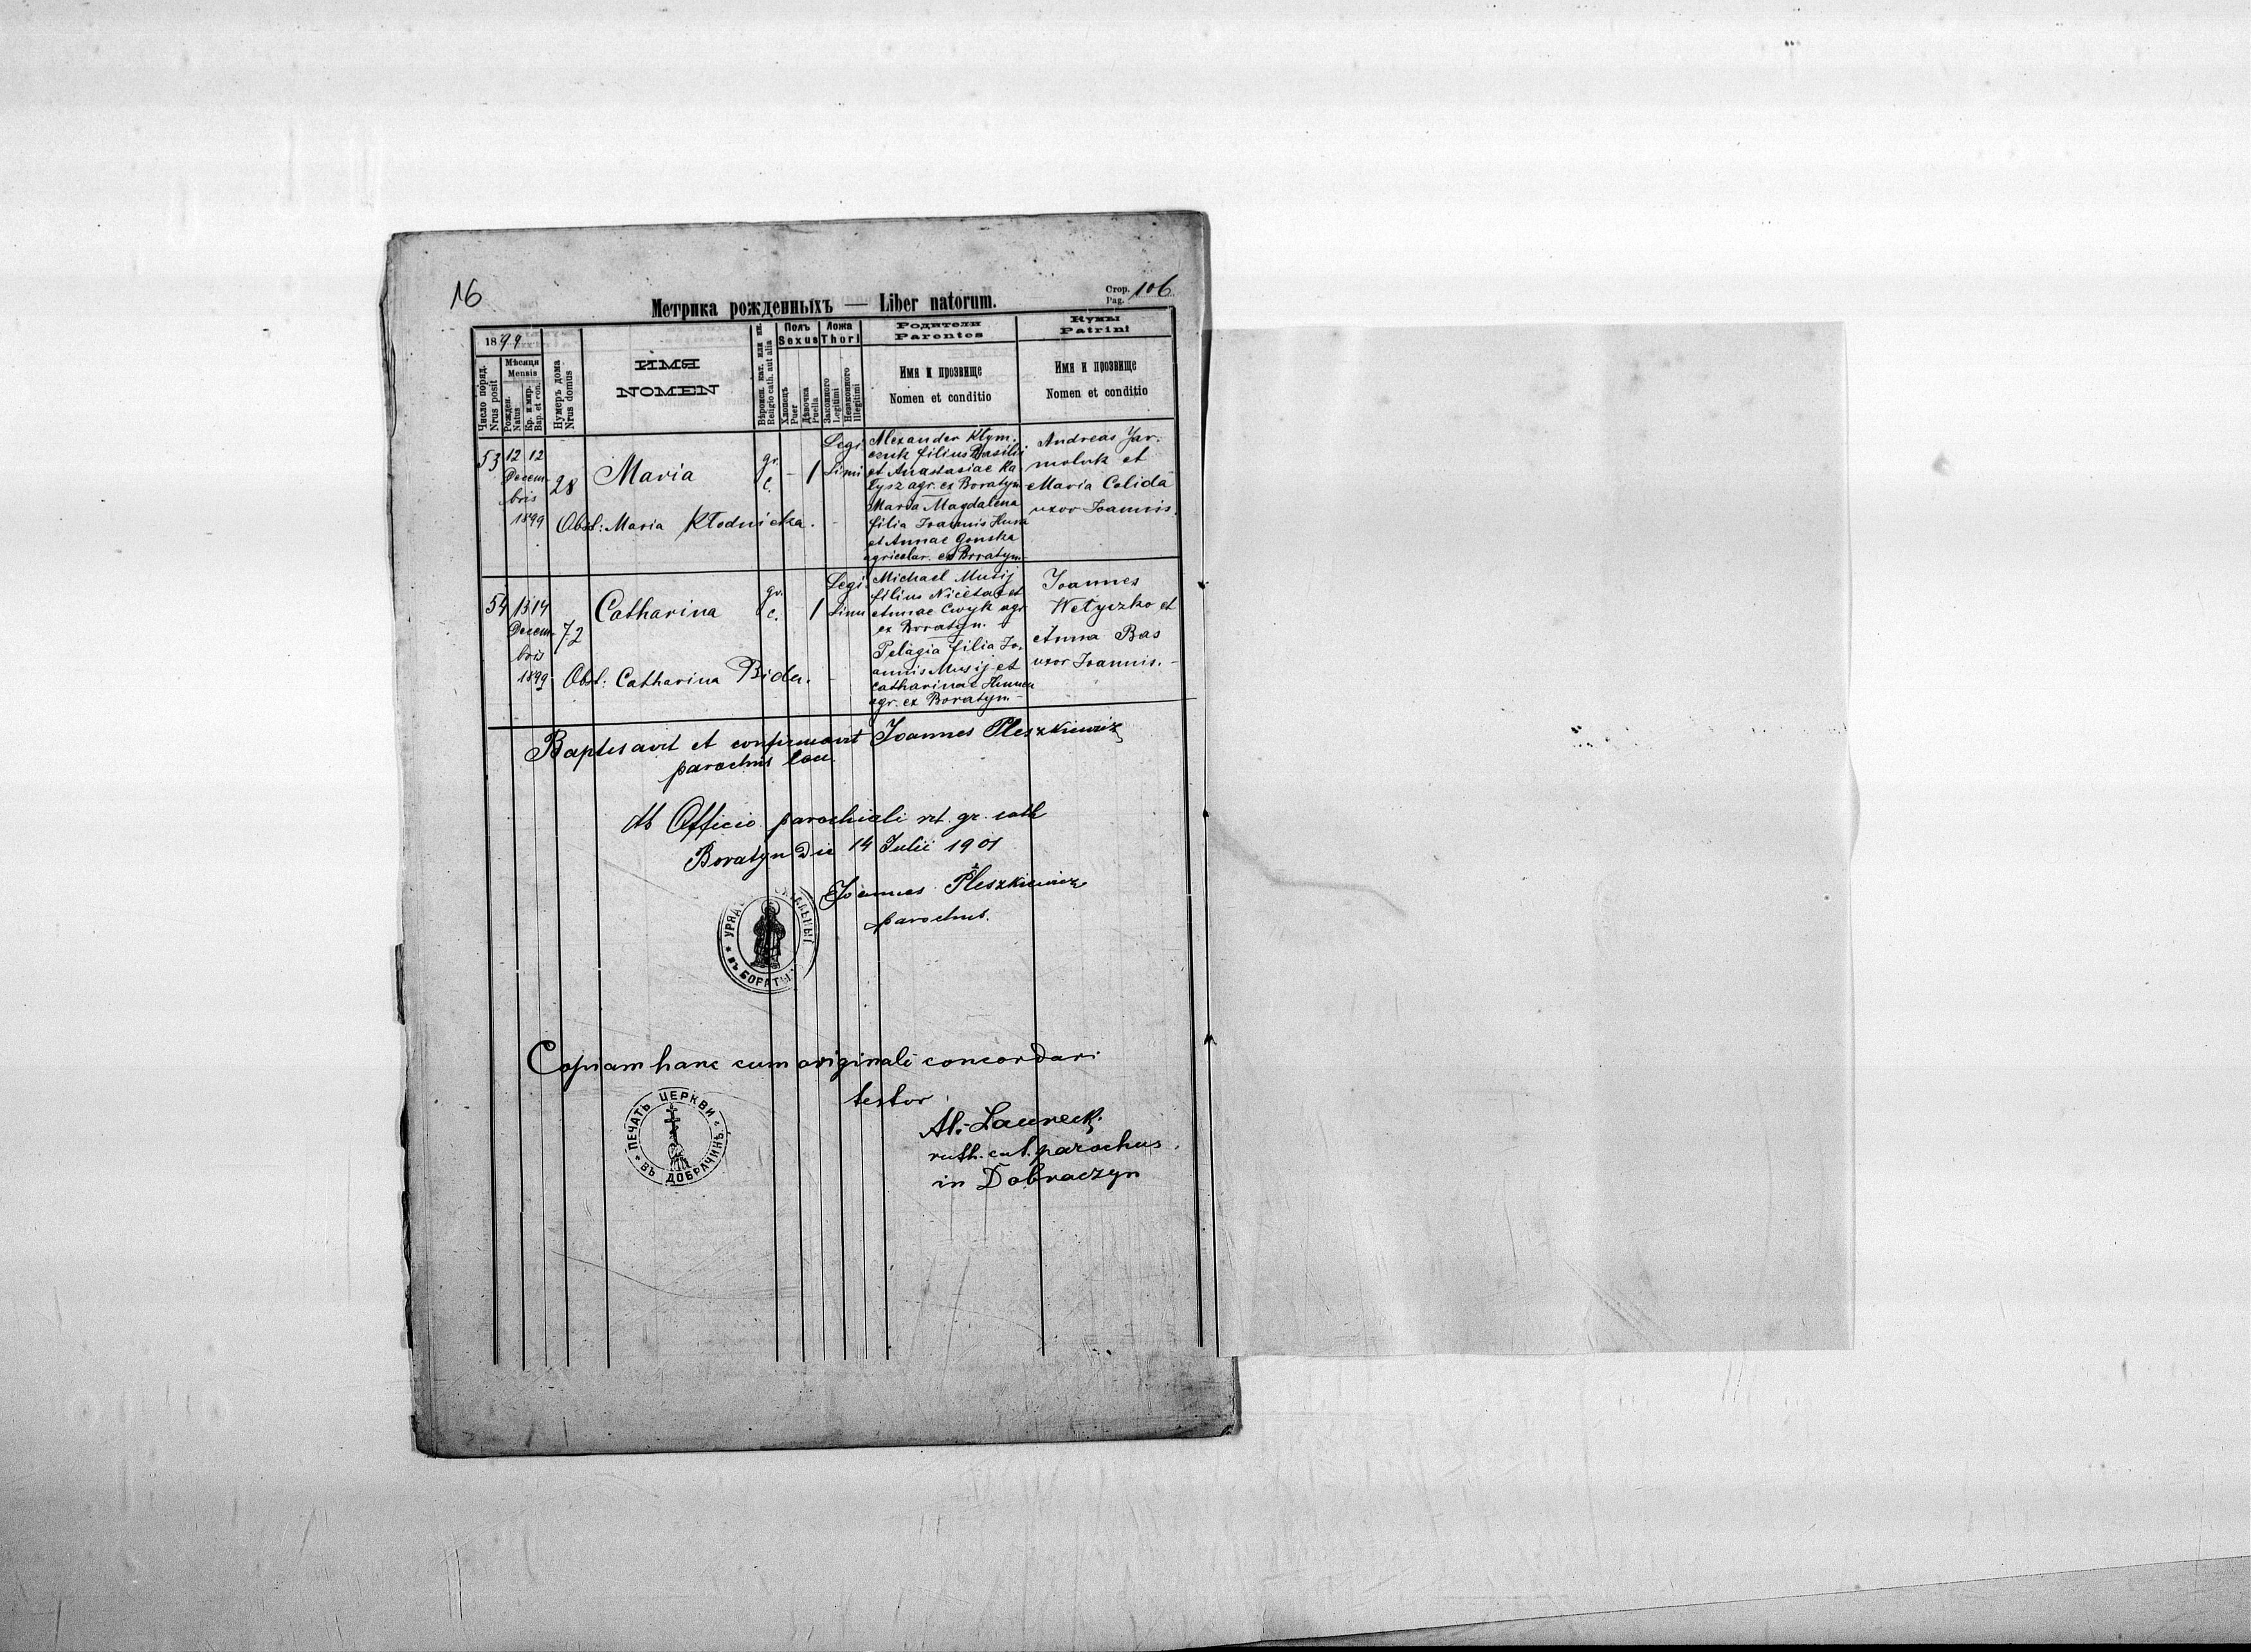 16
Метрика рожденныхъ — Liber natorum.
Стор. 106
Pag.
1899
Число поряд.
Nrus posit
Мѣсяця
Mensis
Рожден.
Natus
Кр. и мир.
Bap. et con.
Нумеръ дома
Nrus domus
ИМЯ
NOMEN
Religio cath. aut alia
Полъ
Sexus
Хлопець
Puer
Дѣвочка
Puella
Ложа
Thori
Законного
Legitimi
Незаконного
Illegitimi
Родители
Parentes
Имя и прозвище
Nomen et conditio
Кумы
Patrini
Имя и прозвище
Nomen et conditio
53
12 12
Decem-
bris
1899
28
Maria
gr.
c.
-
1
Legi
timi
Obst: Maria Kłodnicka.
Alexander Klym-
czuk filius Basilii
et Anastasiae Ka
łysz agr. ex Boratyn
Maria Magdalena
filia Joannis Huna
et Annae Gonska
agricolar. ex Boratyn
Andreas Jar-
moluk et
Maria Calida
uxor Joannis.
54
13 14
Decem-
bris
1899
72
Catharina
gr.
c.
1
Legi
timi
Obst: Catharina Bida.
Michael Musij
filius Nicetae et
Annae Cwyk agr
ex Boratyn.
Pelagia filia Jo-
annis Musij et
Catharinae
agr. ex Boratyn
Joannes
Wetyszko et
Anna Bas
uxor Joannis.
Baptisavit et confirmavit Joannes Pleszkiewicz
parochus loci
Ab Officio parochiali rit. gr. cath
Boratyn Die 14 Julii 1901
Joannes Pleszkiewicz
parochus.
въ БОРАТЫ
Copiam hanc cum originali concordari
testor
Al. Laureck.
ruth. cat. parochus
in Dobraczyn
ПЕЧАТЬ ЦЕРКВИ
ВЪ ДОБРАЧИНѢ